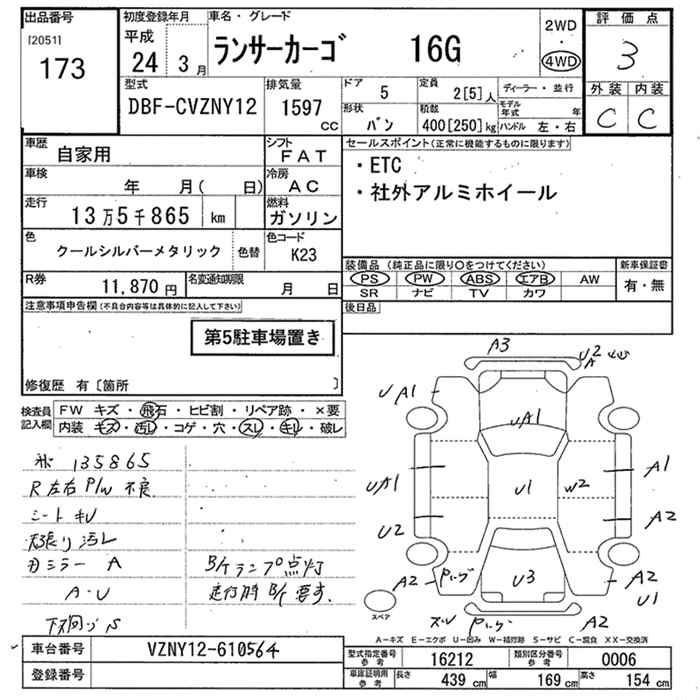 出品番号 初度登録年月 車名・グレード 2WD 評価点
[2051] 平成 ランサーカーゴ 16G 4WD 3
173 24 3月
外装 内装
型式 排気量 ドア 5 定員 2[5]人 ディーラー・並行
DBF-CVZNY12 1597 cc 形状 バン 積数 400[250]kg モデル年式 年 C C
ハンドル 左・右
車歴 自家用 シフト FAT セールスポイント(正常に機能するものに限ります)
車検 年 月( 日) 冷房 AC ・ETC
走行 13万5千865 km 燃料 ガソリン ・社外アルミホイール
色 クールシルバーメタリック 色替 色コード K23
装備品(純正品に限り○をつけてください) 新車保証書
R券 11,870円 名変通知期限 月 日 PS PW ABS エアB AW 有・無
SR ナビ TV カワ
注意事項申告欄(不具合内容等は具体的に記入して下さい) 後日品
第5駐車場置き
修復歴 有〔箇所 〕
検査員記入欄 FW キズ・飛石・ヒビ割・リペア跡・×要
内装 キズ・汚れ・コゲ・穴・スレ・キレ・破レ
135865
R左右 P/W 不良
シート キレ
天張り汚レ
ミラー A
A・U
下廻り S
B/Kランプ点灯
走行時 B/K 要す.
A3
U2
A
UA1
UA1
UA1
U1
W2
A1
U2
A2
A2
U3
A2
U1
A2
スペア
A-キズ E-エクボ U-凹み W-補修跡 S-サビ C-腐食 XX-交換済
車台番号 VZNY12-610564 型式指定番号 参考 16212 類別区分番号 参考 0006
登録番号 車庫証明用 参考 長さ 439 cm 幅 169 cm 高さ 154 cm